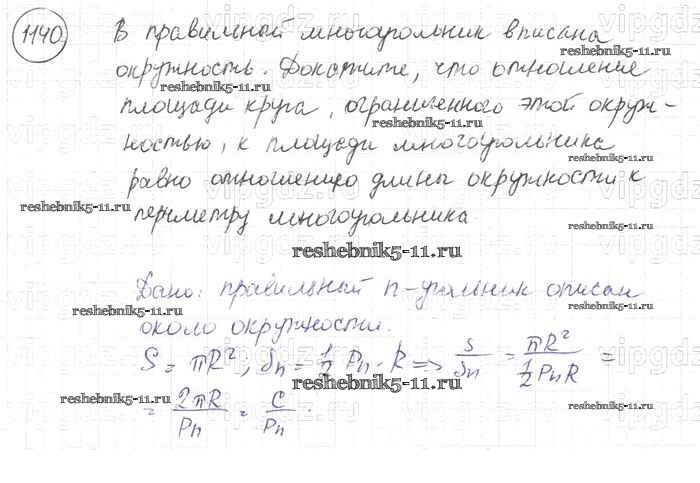 1140.
В правильный многоугольник вписана
окружность. Докажите, что отношение
площади круга, ограниченного этой окруж-
ностью, к площади многоугольника
равно отношению длины окружности к
периметру многоугольника
Дано: правильный n-угольник описан
около окружности.
S = πR², Sn = 1/2 Pn · R ⇒ S/Sn = πR²/(1/2 PnR) =
= 2πR/Pn = C/Pn.
reshebnik5-11.ru
reshebnik5-11.ru
reshebnik5-11.ru
reshebnik5-11.ru
reshebnik5-11.ru
reshebnik5-11.ru
reshebnik5-11.ru
reshebnik5-11.ru
reshebnik5-11.ru
reshebnik5-11.ru
reshebnik5-11.ru
reshebnik5-11.ru